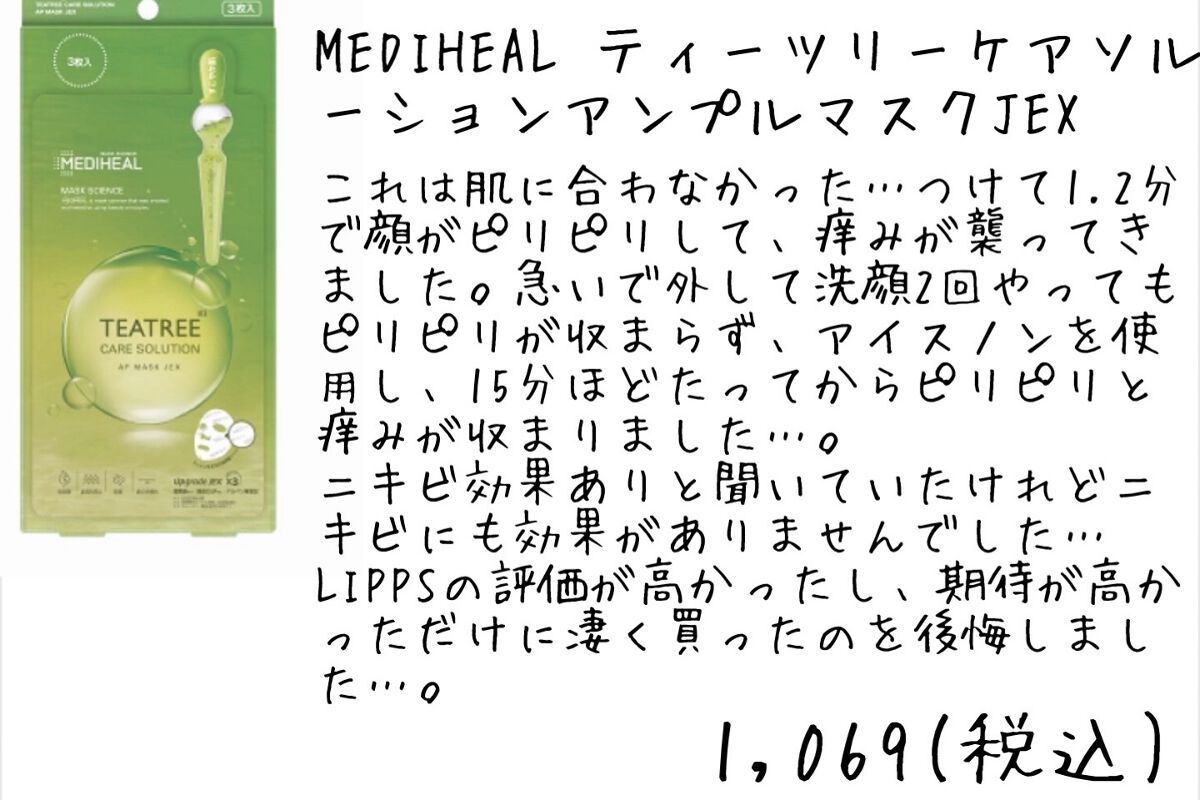 TEATREE CARE SOLUTION
AP MASK JEX
3枚入
3枚入
MEDIHEAL
MASK SCIENCE
TEATREE
CARE SOLUTION
AP MASK JEX
Upgrade JEX X3
MEDIHEAL ティーツリーケアソル
ーションアンプルマスクJEX
これは肌に合わなかった…つけて1.2分
で顔がピリピリして、痒みが襲ってき
ました。急いで外して洗顔2回やっても
ピリピリが収まらず、アイスノンを使
用し、15分ほどたってからピリピリと
痒みが収まりました…。
ニキビ効果ありと聞いていたけれどニ
キビにも効果がありませんでした…
LIPPSの評価が高かったし、期待が高か
っただけに凄く買ったのを後悔しまし
た…。
1,069(税込)